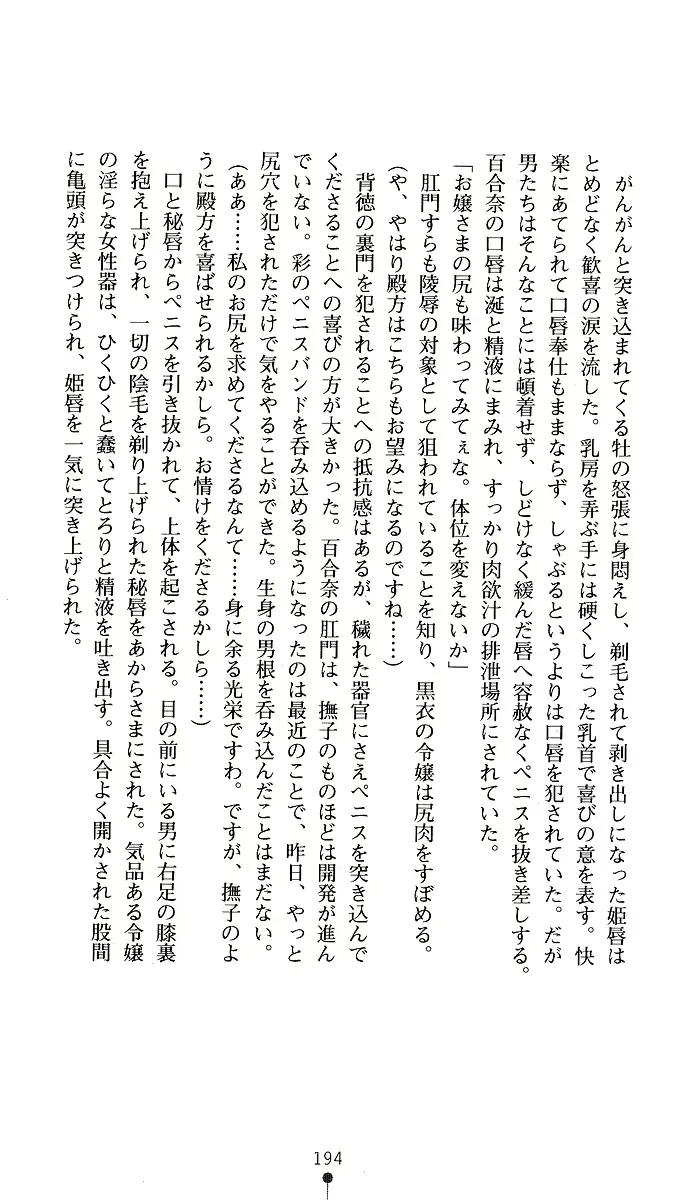 がんがんと突き込まれてくる牡の怒張に身悶えし、剃毛されて剥き出しになった姫唇は
とめどなく歓喜の涙を流した。乳房を弄ぶ手には硬くしこった乳首で喜びの意を表す。快
楽にあてられて口唇奉仕もままならず、しゃぶるというよりは口唇を犯されていた。だが
男たちはそんなことには頓着せず、しどけなく緩んだ唇へ容赦なくペニスを抜き差しする。
百合奈の口唇は涎と精液にまみれ、すっかり肉欲汁の排泄場所にされていた。
「お嬢さまの尻も味わってみてぇな。体位を変えないか」
肛門すらも陵辱の対象として狙われていることを知り、黒衣の令嬢は尻肉をすぼめる。
(や、やはり殿方はこちらもお望みになるのですね……)
背徳の裏門を犯されることへの抵抗感はあるが、穢れた器官にさえペニスを突き込んで
くださることへの喜びの方が大きかった。百合奈の肛門は、撫子のものほどは開発が進ん
でいない。彩のペニスバンドを呑み込めるようになったのは最近のことで、昨日、やっと
尻穴を犯されただけで気をやることができた。生身の男根を呑み込んだことはまだない。
(ああ……私のお尻を求めてくださるなんて……身に余る光栄ですわ。ですが、撫子のよ
うに殿方を喜ばせられるかしら。お情けをくださるかしら……)
口と秘唇からペニスを引き抜かれて、上体を起こされる。目の前にいる男に右足の膝裏
を抱え上げられ、一切の陰毛を剃り上げられた秘唇をあからさまにされた。気品ある令嬢
の淫らな女性器は、ひくひくと蠢いてとろりと精液を吐き出す。具合よく開かされた股間
に亀頭が突きつけられ、姫唇を一気に突き上げられた。
194